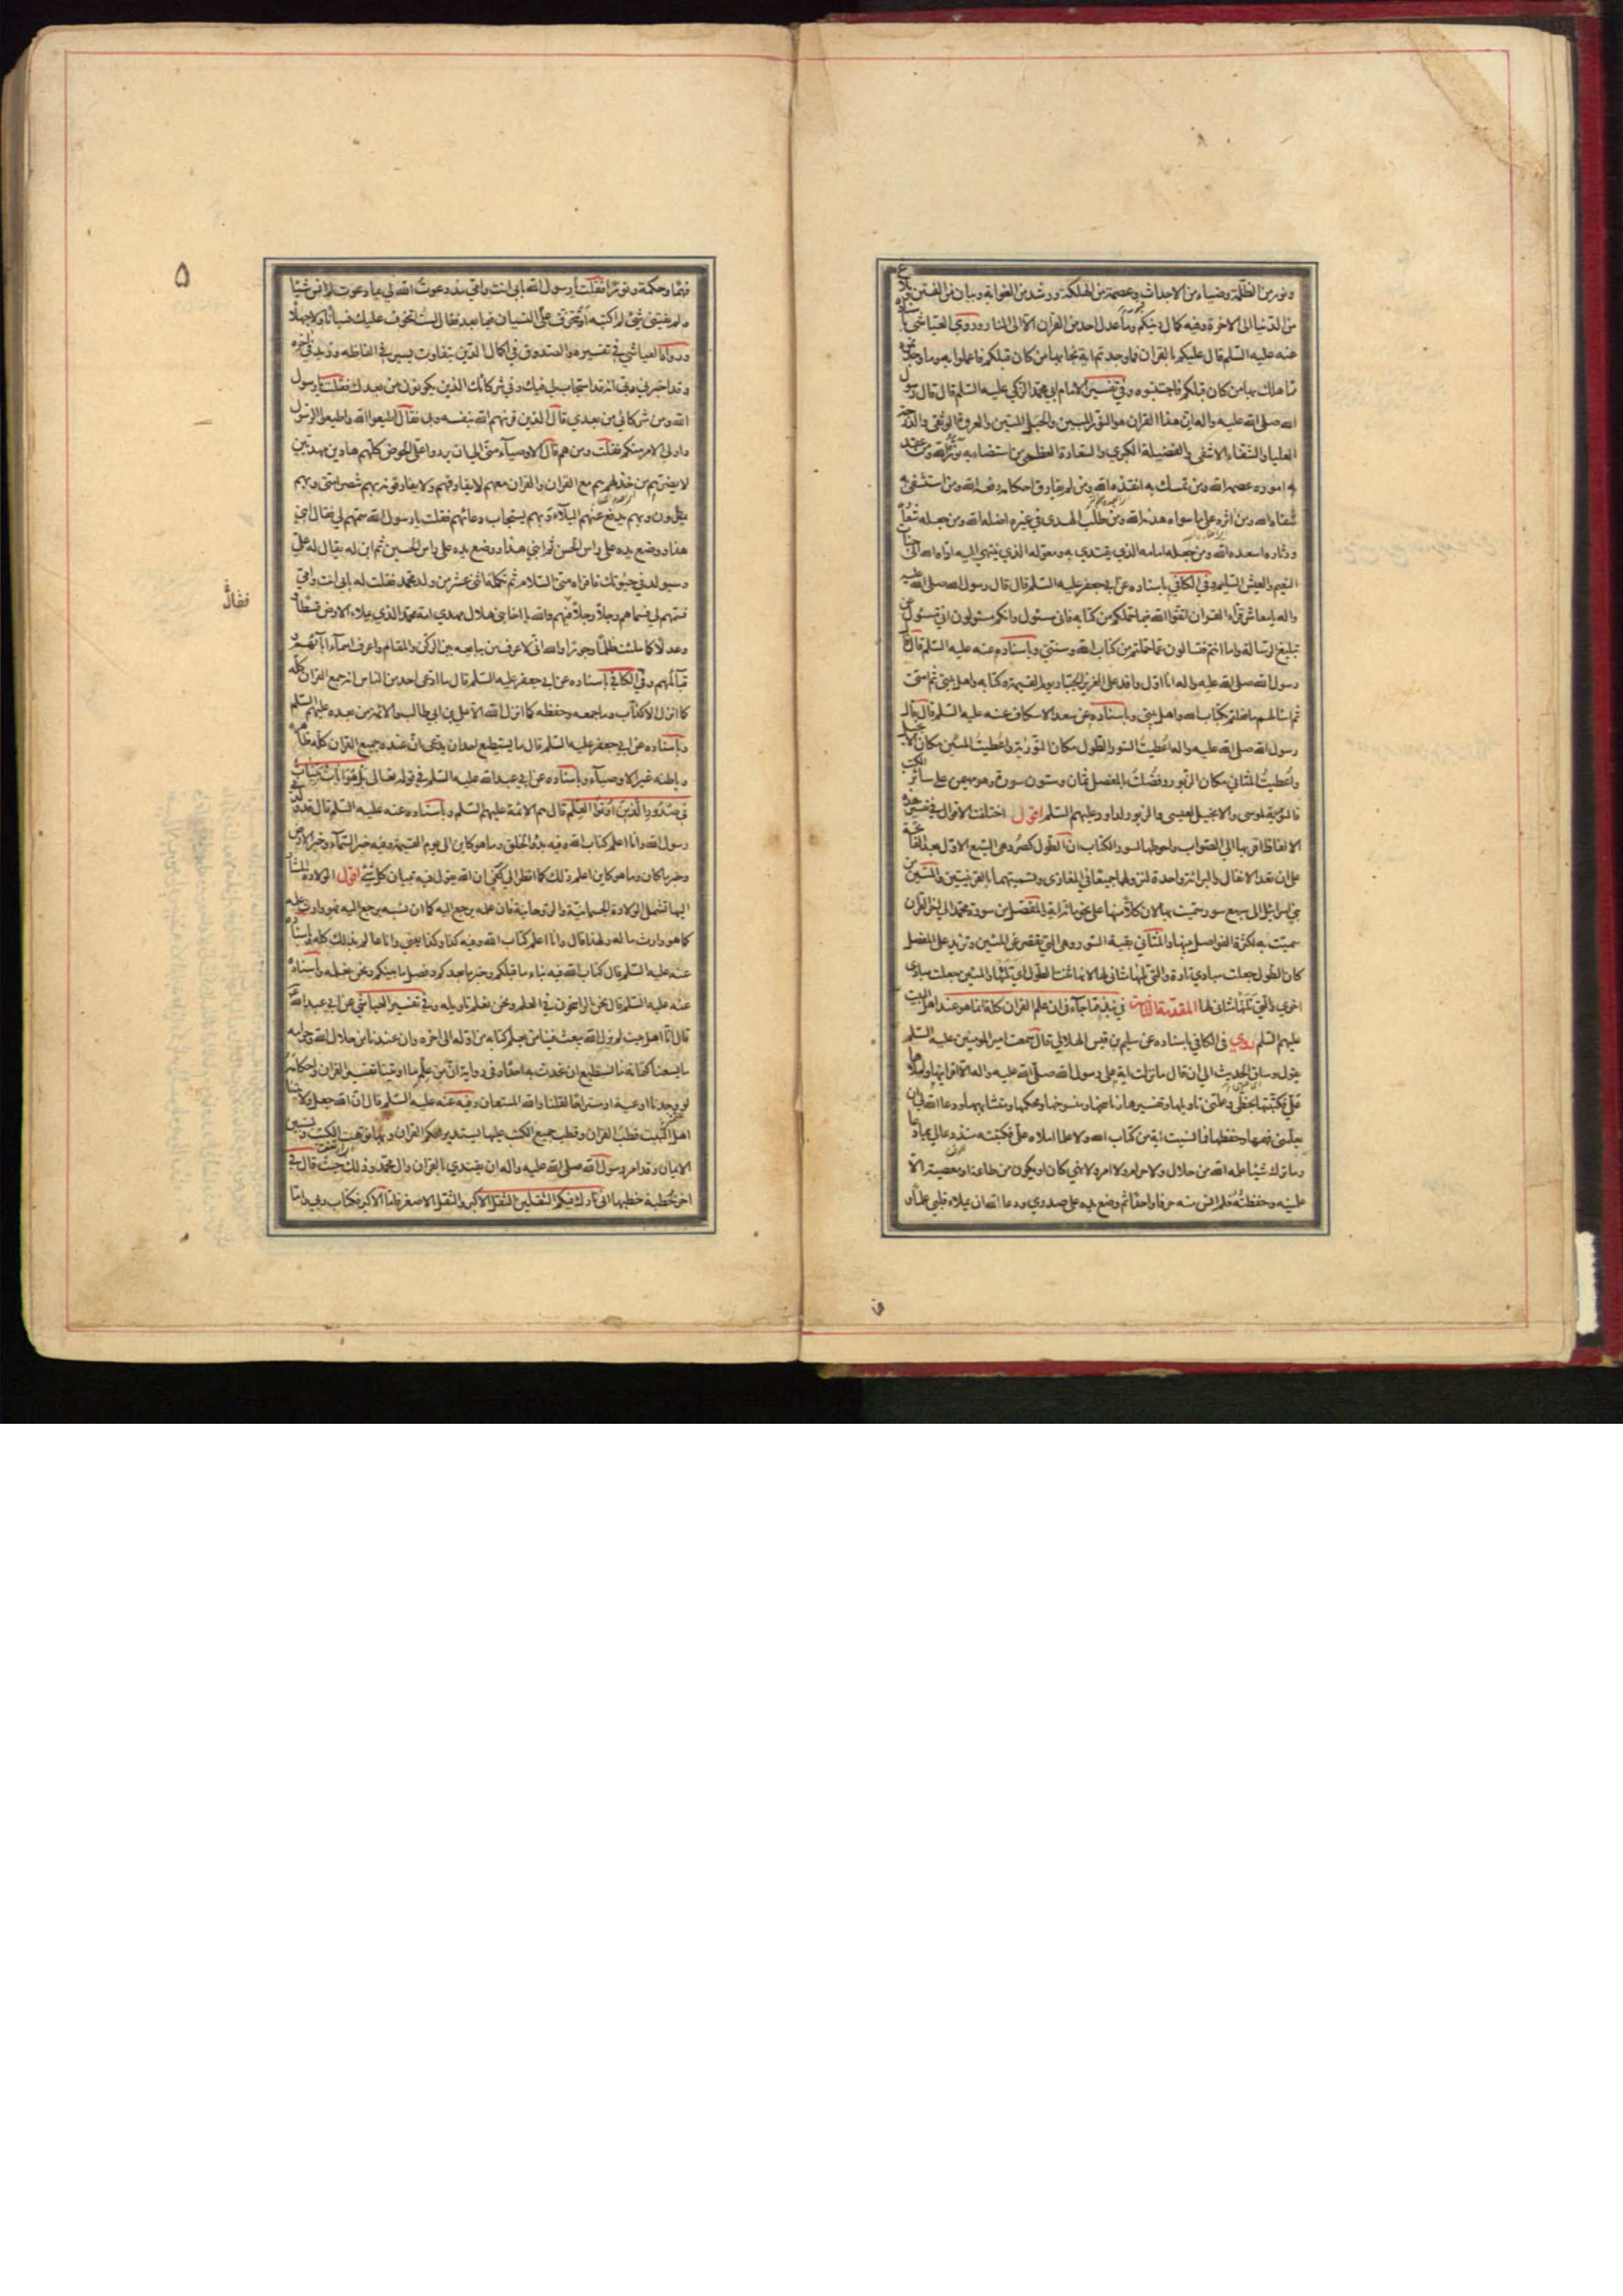 ونور من الظلمة وضياء من الاحداث وعصمة من الهلكة ورشد من الغواية وبيان من الفتن وبلاغ
من الدنيا الى الاخرة وفيه كمال دينكم وما عدل احد من القران الا الى النار وروى العياشي باسناده
عنه عليه السلم قال عليكم بالقران فما وجدتم اية نجا بها من كان قبلكم فاعملوا به وما وجدتموه
مما هلك بها من كان قبلكم فاجتنبوه وفي تفسير الامام ابي محمد الزكي عليه السلم قال قال رسول
الله صلى الله عليه واله ان هذا القران هو النور المبين والحبل المتين والعروة الوثقى والدرجة
العليا والشفاء الاشفى والفضيلة الكبرى والسعادة العظمى من استضاء به نوره الله ومن عقد
به اموره عصمه الله ومن تمسك به انقذه الله ومن لم يفارق احكامه رفعه الله ومن استشفى به
شفاه الله ومن اثره على ما سواه هداه الله ومن طلب الهدى في غيره اضله الله ومن جعله شعاره
ودثاره اسعده الله ومن جعله امامه الذي يقتدى به ومعوله الذي ينتهى اليه اواه الله الى جنات
النعيم والعيش السليم وفي الكافي باسناده عن ابي جعفر عليه السلم قال قال رسول الله صلى الله عليه
واله يا معاشر قراء القران اتقوا الله فيما حملكم من كتابه فاني مسئول وانكم مسئولون اني مسئول عن
تبليغ الرسالة واما انتم فتسالون عما حملتم من كتاب الله وسنتي وباسناده عنه عليه السلم قال قال
رسول الله صلى الله عليه واله انا اول وافد على العزيز الجبار يوم القيمة وكتابه واهل بيتي ثم امتي
ثم اسئالهم ما فعلتم بكتاب الله واهل بيتي وباسناده عن سعد الاسكاف عنه عليه السلم قال قال
رسول الله صلى الله عليه واله اعطيت السور الطول مكان التورية واعطيت المئين مكان الانجيل
واعطيت المثاني مكان الزبور وفضلت بالمفصل ثمان وستون سورة وهو مهيمن على سائر الكتب
فالتورية لموسى والانجيل لعيسى والزبور لداود وعليهم السلم اقول اختلفت الاقوال في تفسير هذه
الالفاظ اقربها الى الصواب واحوطها لسور الكتاب ان الطول كصرد هي السبع الاول بعد الفاتحة
على ان تعد الانفال والبرائة واحدة لنزولهما جميعا في المغازى وتسميتهما بالقرينتين والمئين من
بني اسرائيل الى سبع سور سميت بها لان كلا منها على نحو مائة اية والمفصل من سورة محمد الى اخر القران
سميت به لكثرة الفواصل بينها والمثاني بقية السور وهي التي تقصر عن المئين وتزيد على المفصل
كان الطول جعلت مبادي تارة والتي تلتها مثاني لها لانها ثنت الطول اي تلتها والمئين جعلت مبادي
اخرى والتي تلتها مثاني لها المقدمة الثانية في نبذ مما جاء في ان علم القران كله انما هو عند اهل البيت
عليهم السلم روى في الكافي باسناده عن سليم بن قيس الهلالي قال سمعت امير المومنين عليه السلم
يقول وساق الحديث الى ان قال ما نزلت اية على رسول الله صلى الله عليه واله الا اقرانيها واملاها
علي فكتبتها بخطي وعلمني تاويلها وتفسيرها وناسخها ومنسوخها ومحكمها ومتشابهها ودعا الله لي ان
يعلمني فهمها وحفظها فما نسيت اية من كتاب الله ولا علما املاه علي فكتبته منذ دعا لي بما دعا
وما ترك شيئا علمه الله من حلال ولا حرام ولا امر ولا نهي كان او يكون من طاعة او معصية الا
علمنيه وحفظته فلم انس منه حرفا واحدا ثم وضع يده على صدري ودعا الله ان يملاء قلبي علما و
۵
فهما وحكمة ونورا فقلت يا رسول الله بابي انت وامي منذ دعوت الله لي بما دعوت لم انس شيئا
ولم يفتني شئ لم اكتبه او تتخوف علي النسيان فيما بعد فقال لست اتخوف عليك نسيانا ولا جهلا
ورواه العياشي في تفسيره والصدوق في اكمال الدين بتفاوت يسير في الفاظه وزيد في اخره
وقد اخبرني ربي انه قد استجاب لي فيك وفي شركائك الذين يكونون من بعدك فقلت يا رسول
الله ومن شركائي من بعدي قال الذين قرنهم الله بنفسه وبي فقال اطيعوا الله واطيعوا الرسول
واولي الامر منكم فقلت ومن هم قال الاوصياء مني الى ان يردوا علي الحوض كلهم هادين مهديين
لا يضرهم من خذلهم هم مع القران والقران معهم لا يفارقهم ولا يفارقونه بهم تنصر امتي وبهم
يمطرون وبهم يدفع عنهم البلاء وبهم يستجاب دعائهم فقلت يا رسول الله سمهم لي فقال ابني
هذا ووضع يده على راس الحسن ثم ابني هذا ووضع يده على راس الحسين ثم ابن له يقال له علي
وسيولد في حيوتك فاقراه مني السلام ثم تكمله اثنى عشر من ولد محمد فقلت له بابي انت وامي
فسمهم لي فسماهم رجلا رجلا فيهم والله يا اخا بني هلال مهدي امة محمد الذي يملاء الارض قسطا
فضال
وعدلا كما ملئت ظلما وجورا والله اني لاعرف من يبايعه بين الركن والمقام واعرف اسماء ابائهم و
قبائلهم وفي الكافي باسناده عن ابي جعفر عليه السلم قال ما ادعى احد من الناس انه جمع القران كله
كما انزل الا كذاب وما جمعه وحفظه كما انزل الله الا علي بن ابي طالب والائمة من بعده عليهم السلم
وباسناده عن ابي جعفر عليه السلم قال ما يستطيع احد ان يدعى ان عنده جميع القران كله ظاهره
وباطنه غير الاوصياء وباسناده عن ابي عبد الله عليه السلم في قوله تعالى بل هو ايات بينات
في صدور الذين اوتوا العلم قال هم الائمة عليهم السلم وباسناده عنه عليه السلم قال قد ولدني
رسول الله وانا اعلم كتاب الله وفيه بدؤ الخلق وما هو كاين الى يوم القيمة وفيه خبر السماء وخبر الارض
وخبر ما كان وما هو كاين اعلم ذلك كما انظر الى كفي ان الله يقول فيه تبيان كل شئ اقول الولادة المشار
اليها تشمل الولادة الجسمانية والروحانية فان علمه يرجع اليه كما ان نسبه يرجع اليه فهو وارث علمه
كما هو وارث ماله ولهذا قال وانا اعلم كتاب الله وفيه كذا وكذا يعني وانا عالم بذلك كله وباسناده
عنه عليه السلم قال كتاب الله فيه نباء ما قبلكم وخبر ما بعدكم وفصل ما بينكم ونحن نعلمه وباسناده
عنه عليه السلم قال نحن الراسخون في العلم ونحن نعلم تاويله وفي تفسير العياشي عن ابي عبد الله
قال انا اهل بيت لم يزل الله يبعث فينا من يعلم كتابه من اوله الى اخره وان عندنا من حلال الله وحرامه
ما يسعنا كتمانه ما نستطيع ان نحدث به احدا وفي رواية ان من علم ما اوتينا تفسير القران واحكامه
لو وجدنا اوعية او مستراحا لقلنا والله المستعان وفيه عنه عليه السلم قال ان الله جعل ولايتنا
اهل البيت قطب القران وقطب جميع الكتب عليها يستدير محكم القران وبها نوهت الكتب ويستبين
الايمان وقد امر رسول الله صلى الله عليه واله ان يقتدى بالقران وال محمد وذلك حيث قال في
اخر خطبة خطبها اني تارك فيكم الثقلين الثقل الاكبر والثقل الاصغر فاما الاكبر فكتاب ربي واما